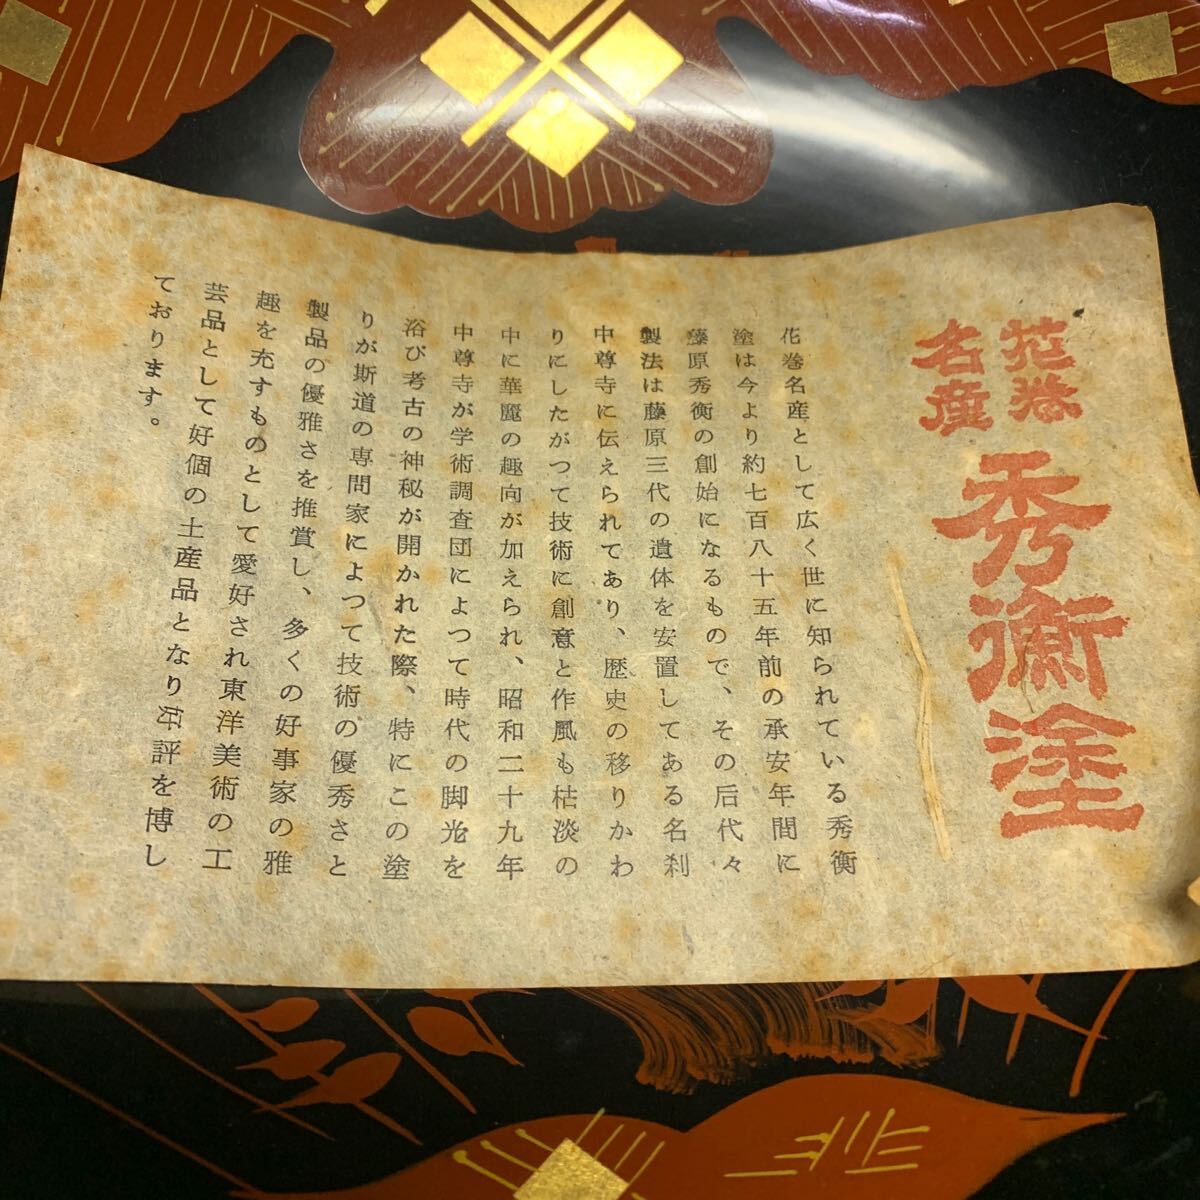 花巻
名産
秀衡塗
花巻名産として広く世に知られている秀衡
塗は今より約七百八十五年前の承安年間に
藤原秀衡の創始になるもので、その后代々
製法は藤原三代の遺体を安置してある名刹
中尊寺に伝えられてあり、歴史の移りかわ
りにしたがつて技術に創意と作風も枯淡の
中に華麗の趣向が加えられ、昭和二十九年
中尊寺が学術調査団によつて時代の脚光を
浴び考古の神秘が開かれた際、特にこの塗
りが斯道の専問家によつて技術の優秀さと
製品の優雅さを推賞し、多くの好事家の雅
趣を充すものとして愛好され東洋美術の工
芸品として好個の土産品となり好評を博し
ております。